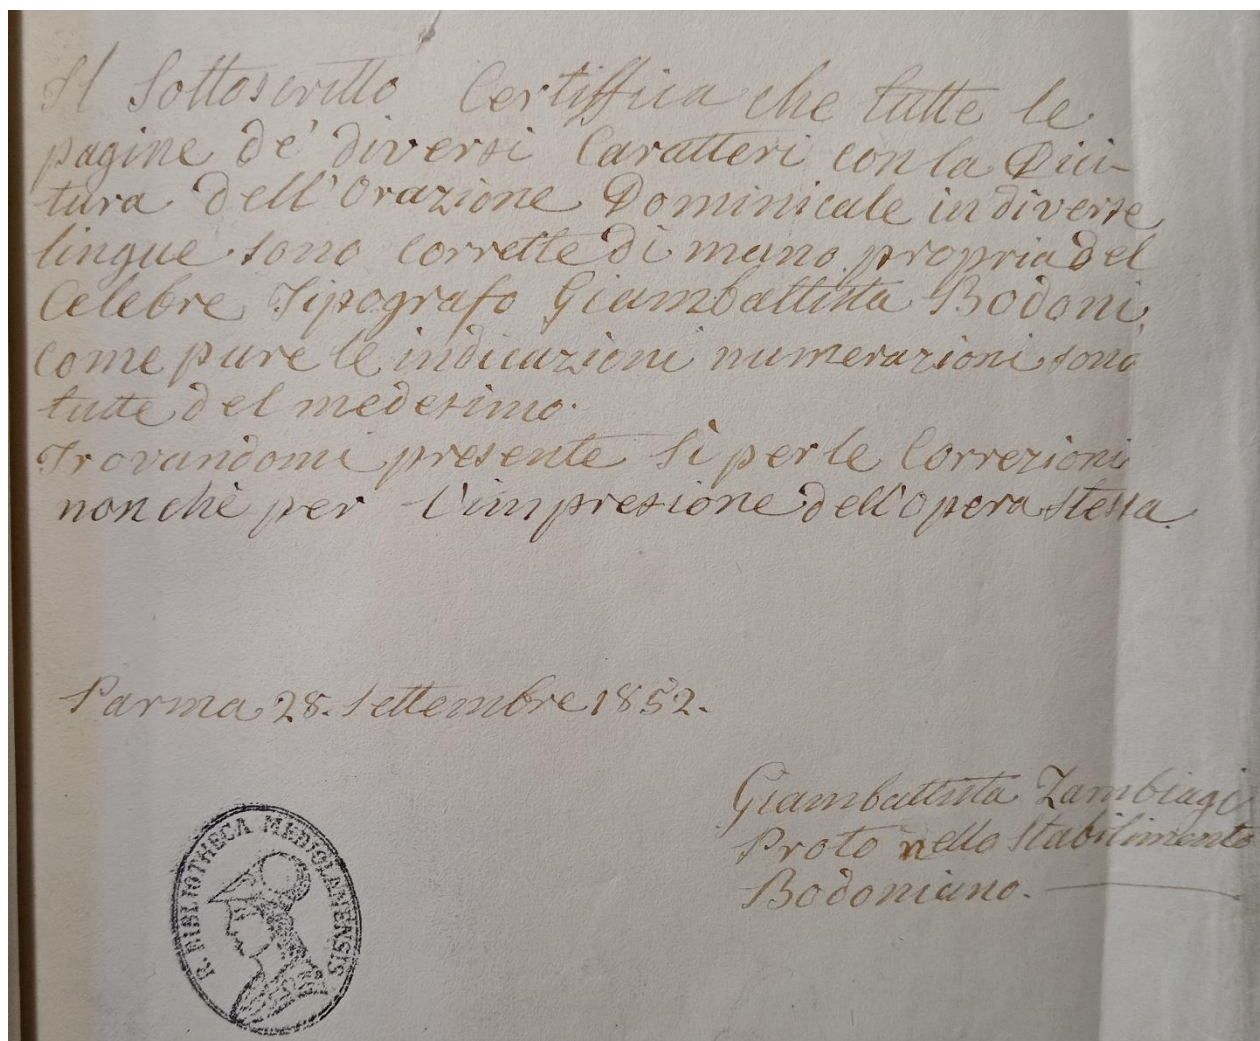 Il Sottoscritto Certiffica che tutte le
pagine de' diversi Caratteri con la Dici-
tura dell'Orazione Dominicale in diverse
lingue sono corrette di mano propria del
Celebre Tipografo Giambattista Bodoni,
come pure le indicazioni numerazioni sono
tutte del medesimo.
Trovandomi presente sì per le Correzioni
non chè per l'impresione dell'opera stessa.
Parma 28. Settembre 1852.
Giambattista Zambiagi
Proto nello Stabilimento
Bodoniano.
R. BIBLIOTHECA MEDIOLANENSIS